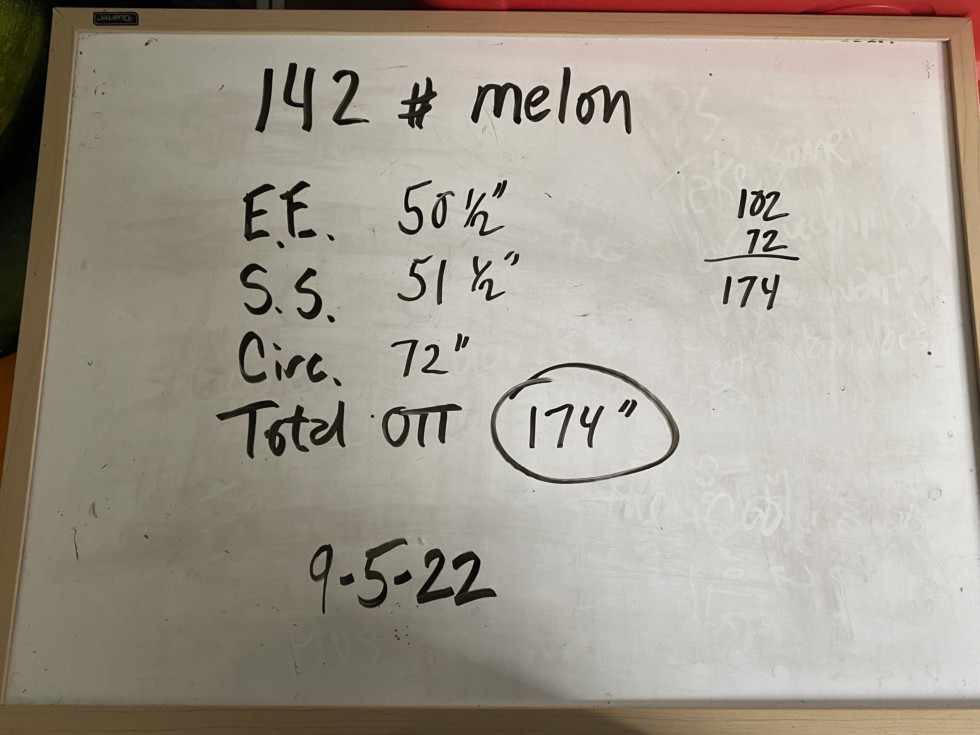 142 # melon
E.E. 50 ½"
S.S. 51 ½"
Circ. 72"
Total OTT 174"
9-5-22
102
72
174
Quartet